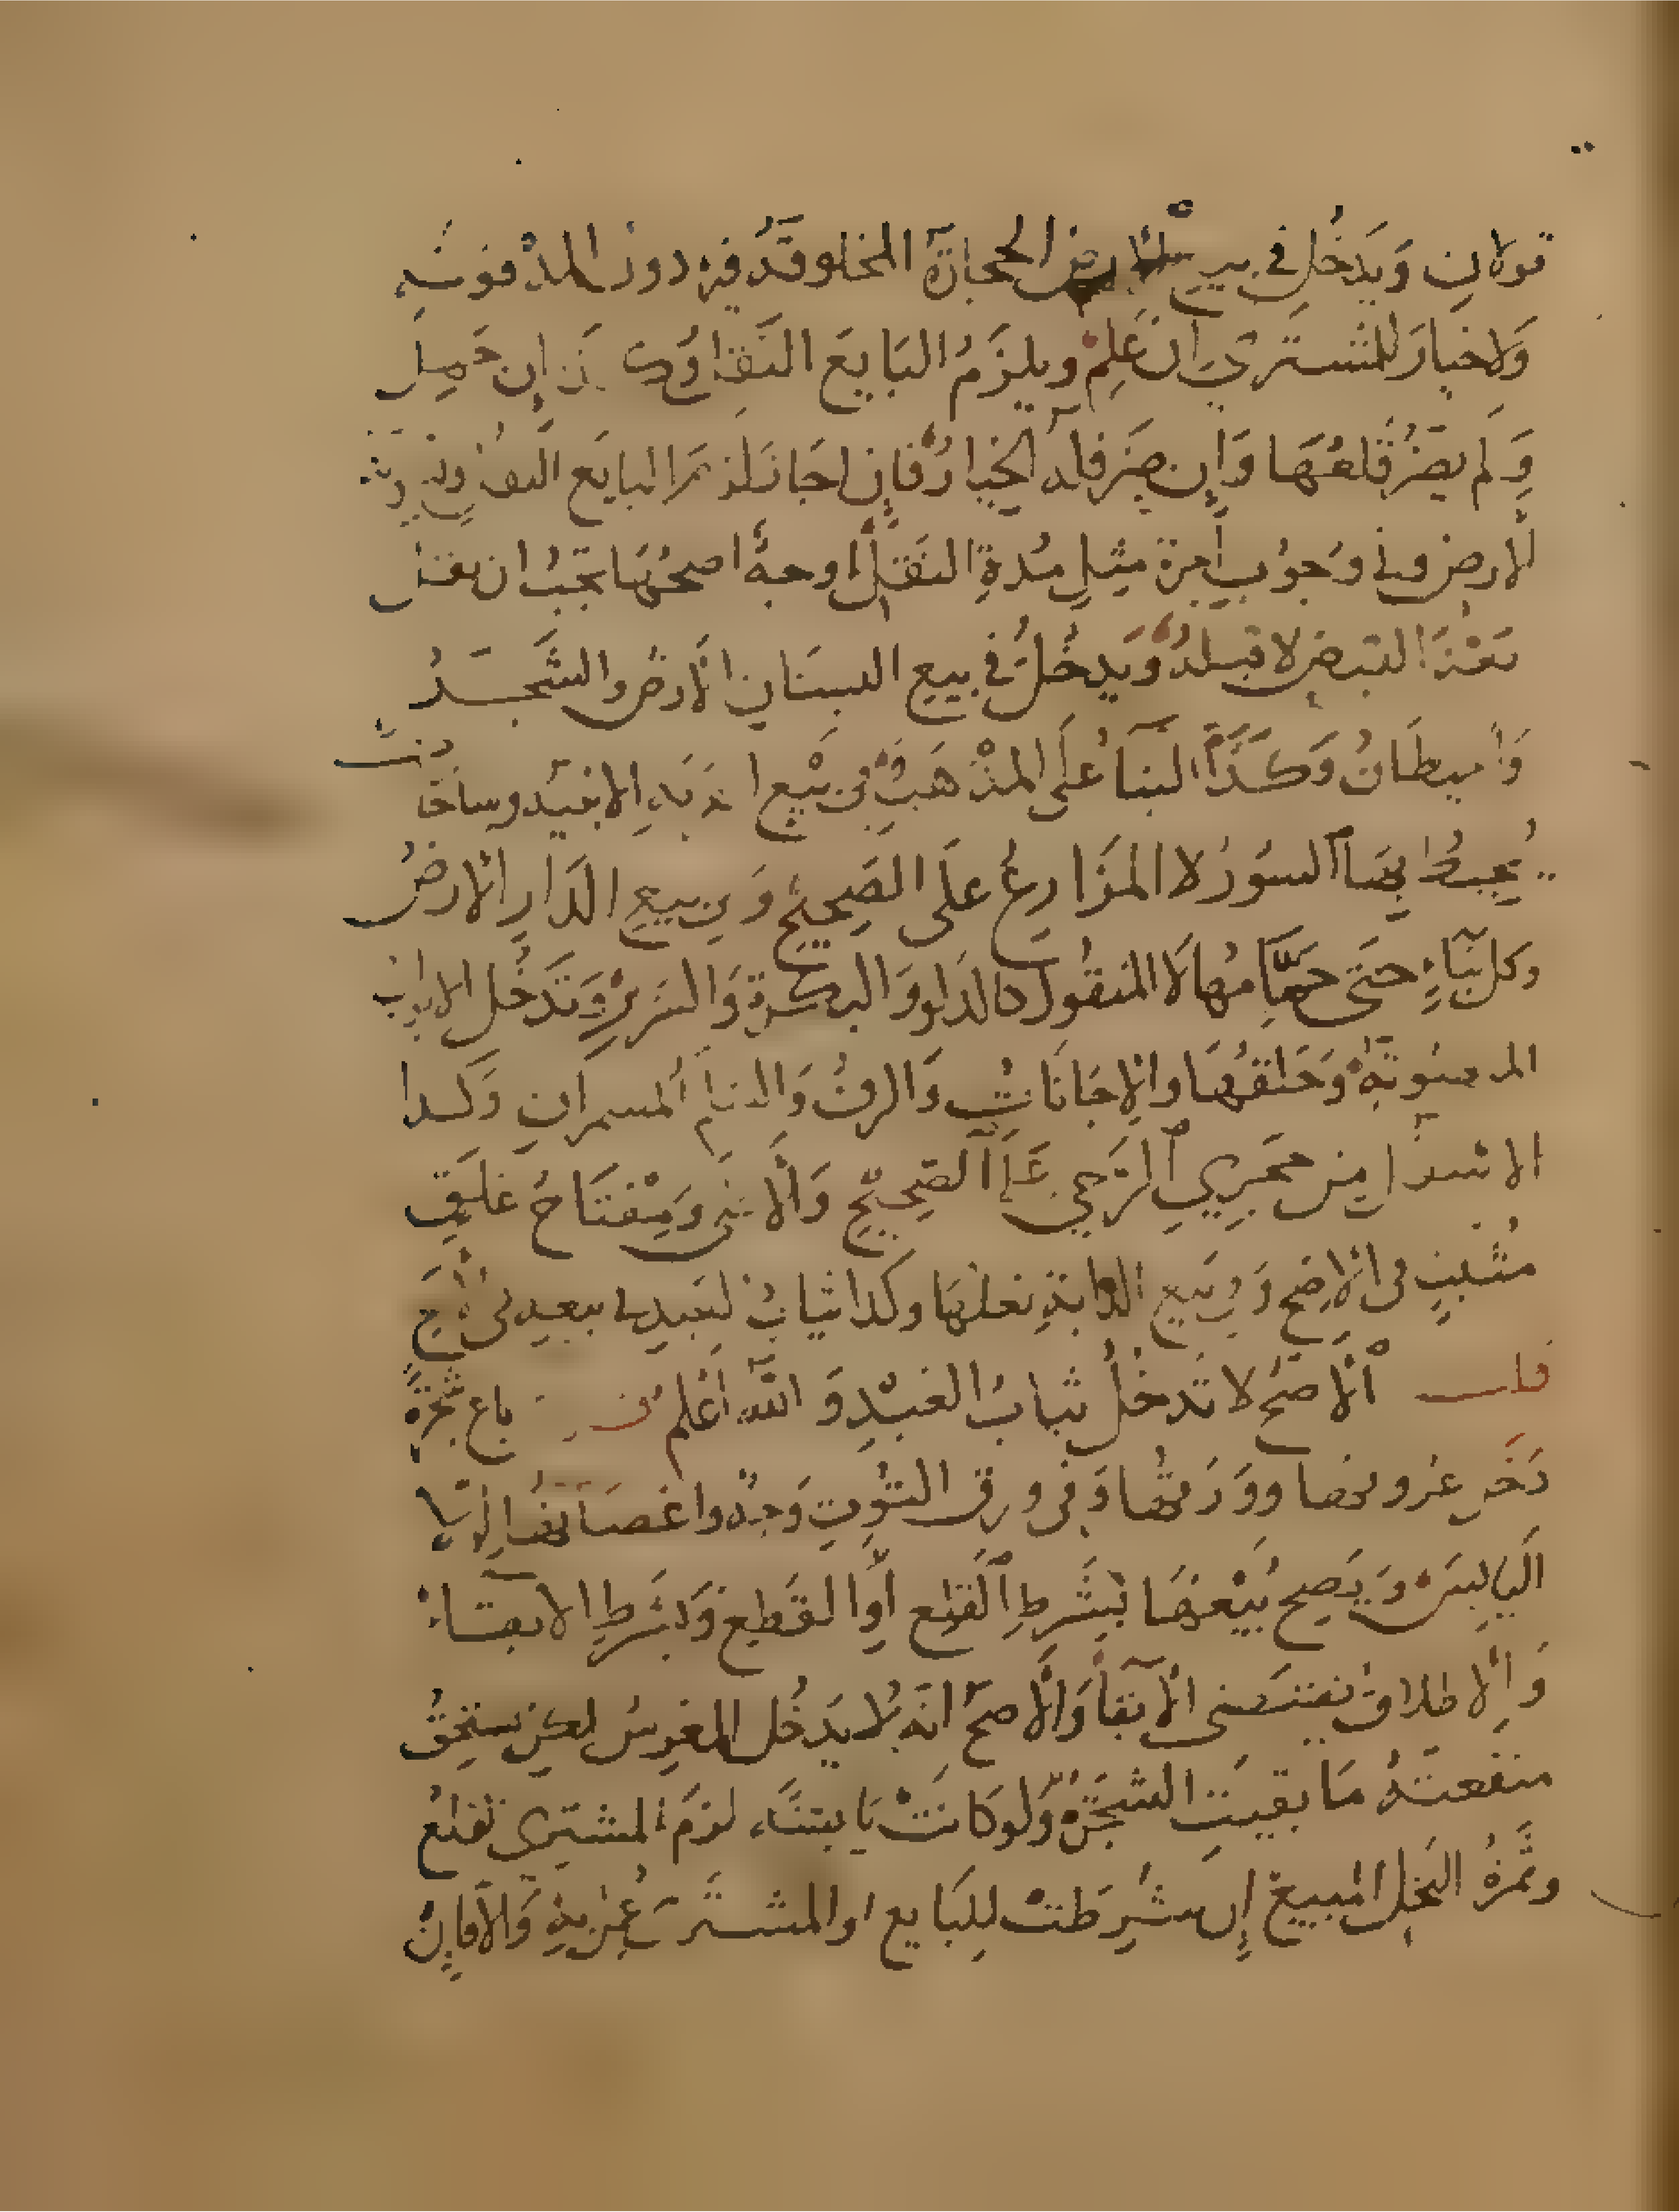 قولان وَيَدخُل في بيع الأرض الحجارَة المخلوقَة فيه دون المدْفونه
وَلا خيارَ للمُشتَري ان عَلِمَ ويلزَمُ البَايعَ النقل وَكذا إن جَهِل
وَلم يضُر قلعُهَا وَإن ضَرّ فله الخيارُ فان اجَازَ لزمَ البايَع النقل وتسوية
الارض وفي وجوُب أجرة مثلِ مُدةِ النقل اوجهٌ اصحُهَا تجبُ ان نقل
بَعْدَ القبض لا قبله وَيدخُلُ في بيعِ البستانِ الأرضُ والشَجَرُ
وَالحيطَانُ وَكَذَا البنَاءُ عَلَى المذْهَبِ وفي بَيْع القريَةِ الابنية وساحَاتٌ
يُحِيطُ بِهَا السوُرُ لا المزَارِعُ عَلَى الصَحِيحِ وَفي بيعِ الدَارِ الارضُ
وكل بنَاءٍ حتى حمَّامهَا لَا المنقُولُ كالدَلو وَالبكرَة وَالسَرير وَتَدخُل الابوابُ
المنصُوبَة وَحَلَقُهَا والإجَانَاتُ وَالرفُ وَالسلم المسمرانِ وَكذا
الاسفل مِن حجَرِي الرَحَى عَلَى الصَحِيحِ وَالأعْلَى وَمِفْتَاحُ غَلَقٍ
مُثبَتٍ في الأصَح وَفي بَيع الدابةِ نعلهَا وكذا ثيابُ العَبدِ في بيعه في الأصَح
قلت الأصَحُ لا تَدخُلُ ثيابُ العَبْدِ وَاللَّهُ أَعْلَم فرع باع شجَرَةً
دَخَل عُروقهَا ووَرَقُهَا وَفي ورق التُوتِ وَجْهٌ واغصَانُهَا إلا
اليَابِسَ وَيَصِح بَيْعُهَا بِشَرطِ القَلع أو القَطع وَبشَرطِ الابقَاء
وَالإطلاقُ يقتَضى الابقاء وَالأصح انَهُ لا يَدخُل المغرِسُ لكن يستَحِقُ
منفعتَهُ مَا بقيَتِ الشَجَرَةُ وَلو كَانَتْ يَابسَة لزمَ المشتري القلعُ
وثَمَرةُ النَخلِ المبيعِ إن شُرِطَتْ للبَايع او المشتَري عُمِل بهِ وَالا فان